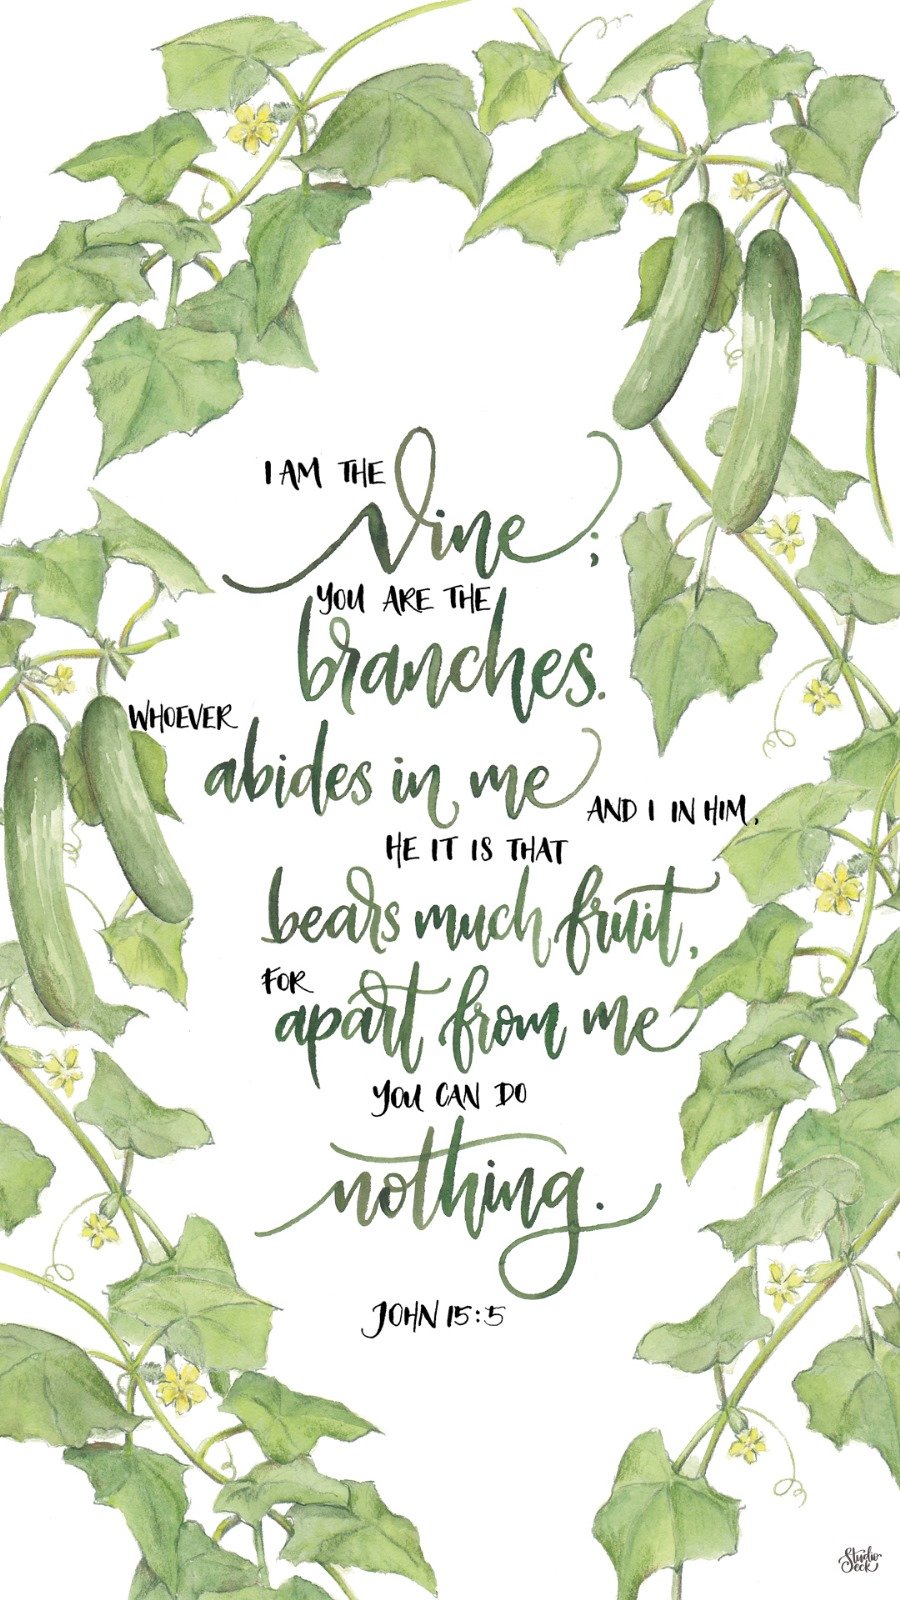 I AM THE
Vine;
YOU ARE THE
branches.
WHOEVER
abides in me
AND I IN HIM,
HE IT IS THAT
bears much fruit,
FOR
apart from me
YOU CAN DO
nothing.
JOHN 15:5
Studio
eck